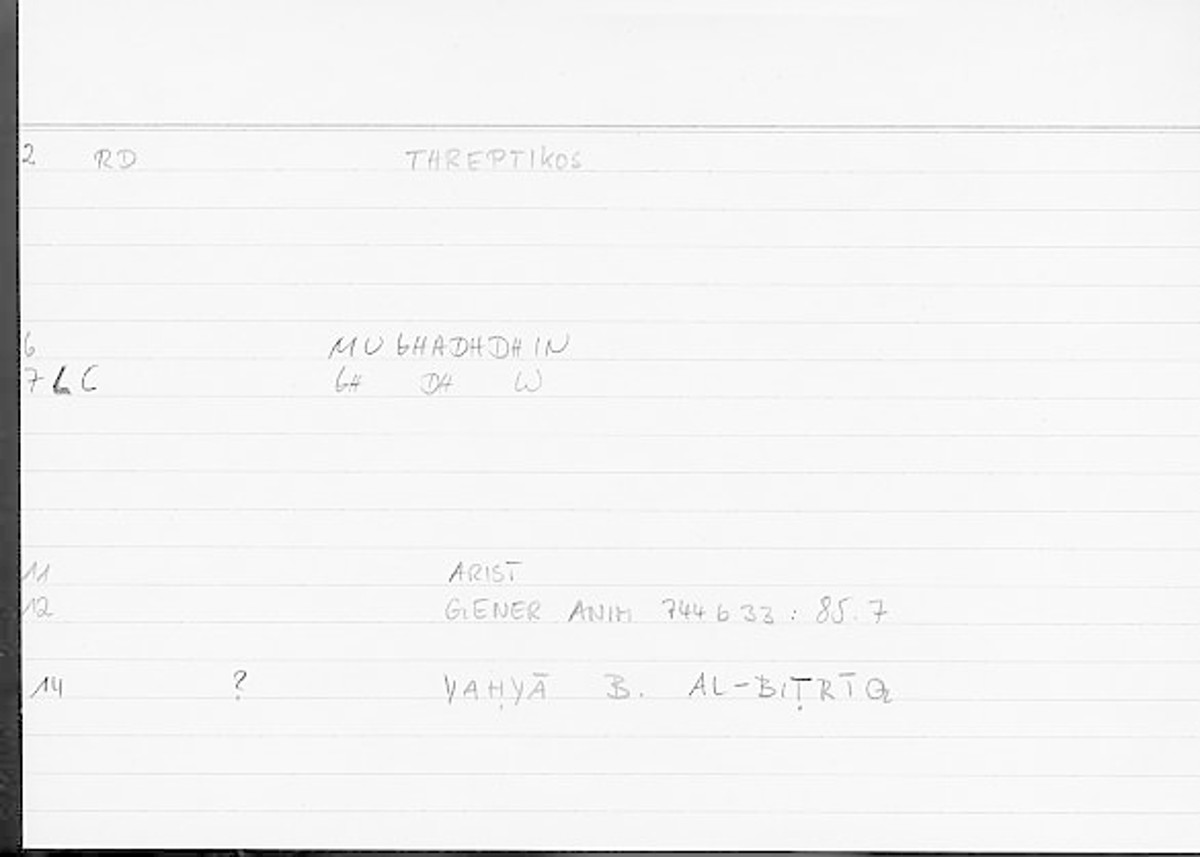 2 RD THREPTIKOS
6 MUGHADHDHIN
7 LC GH DH W
11 ARIST
12 GENER ANIM 744 b 33 : 85.7
14 ? YAḤYĀ B. AL-BIṬRĪQ